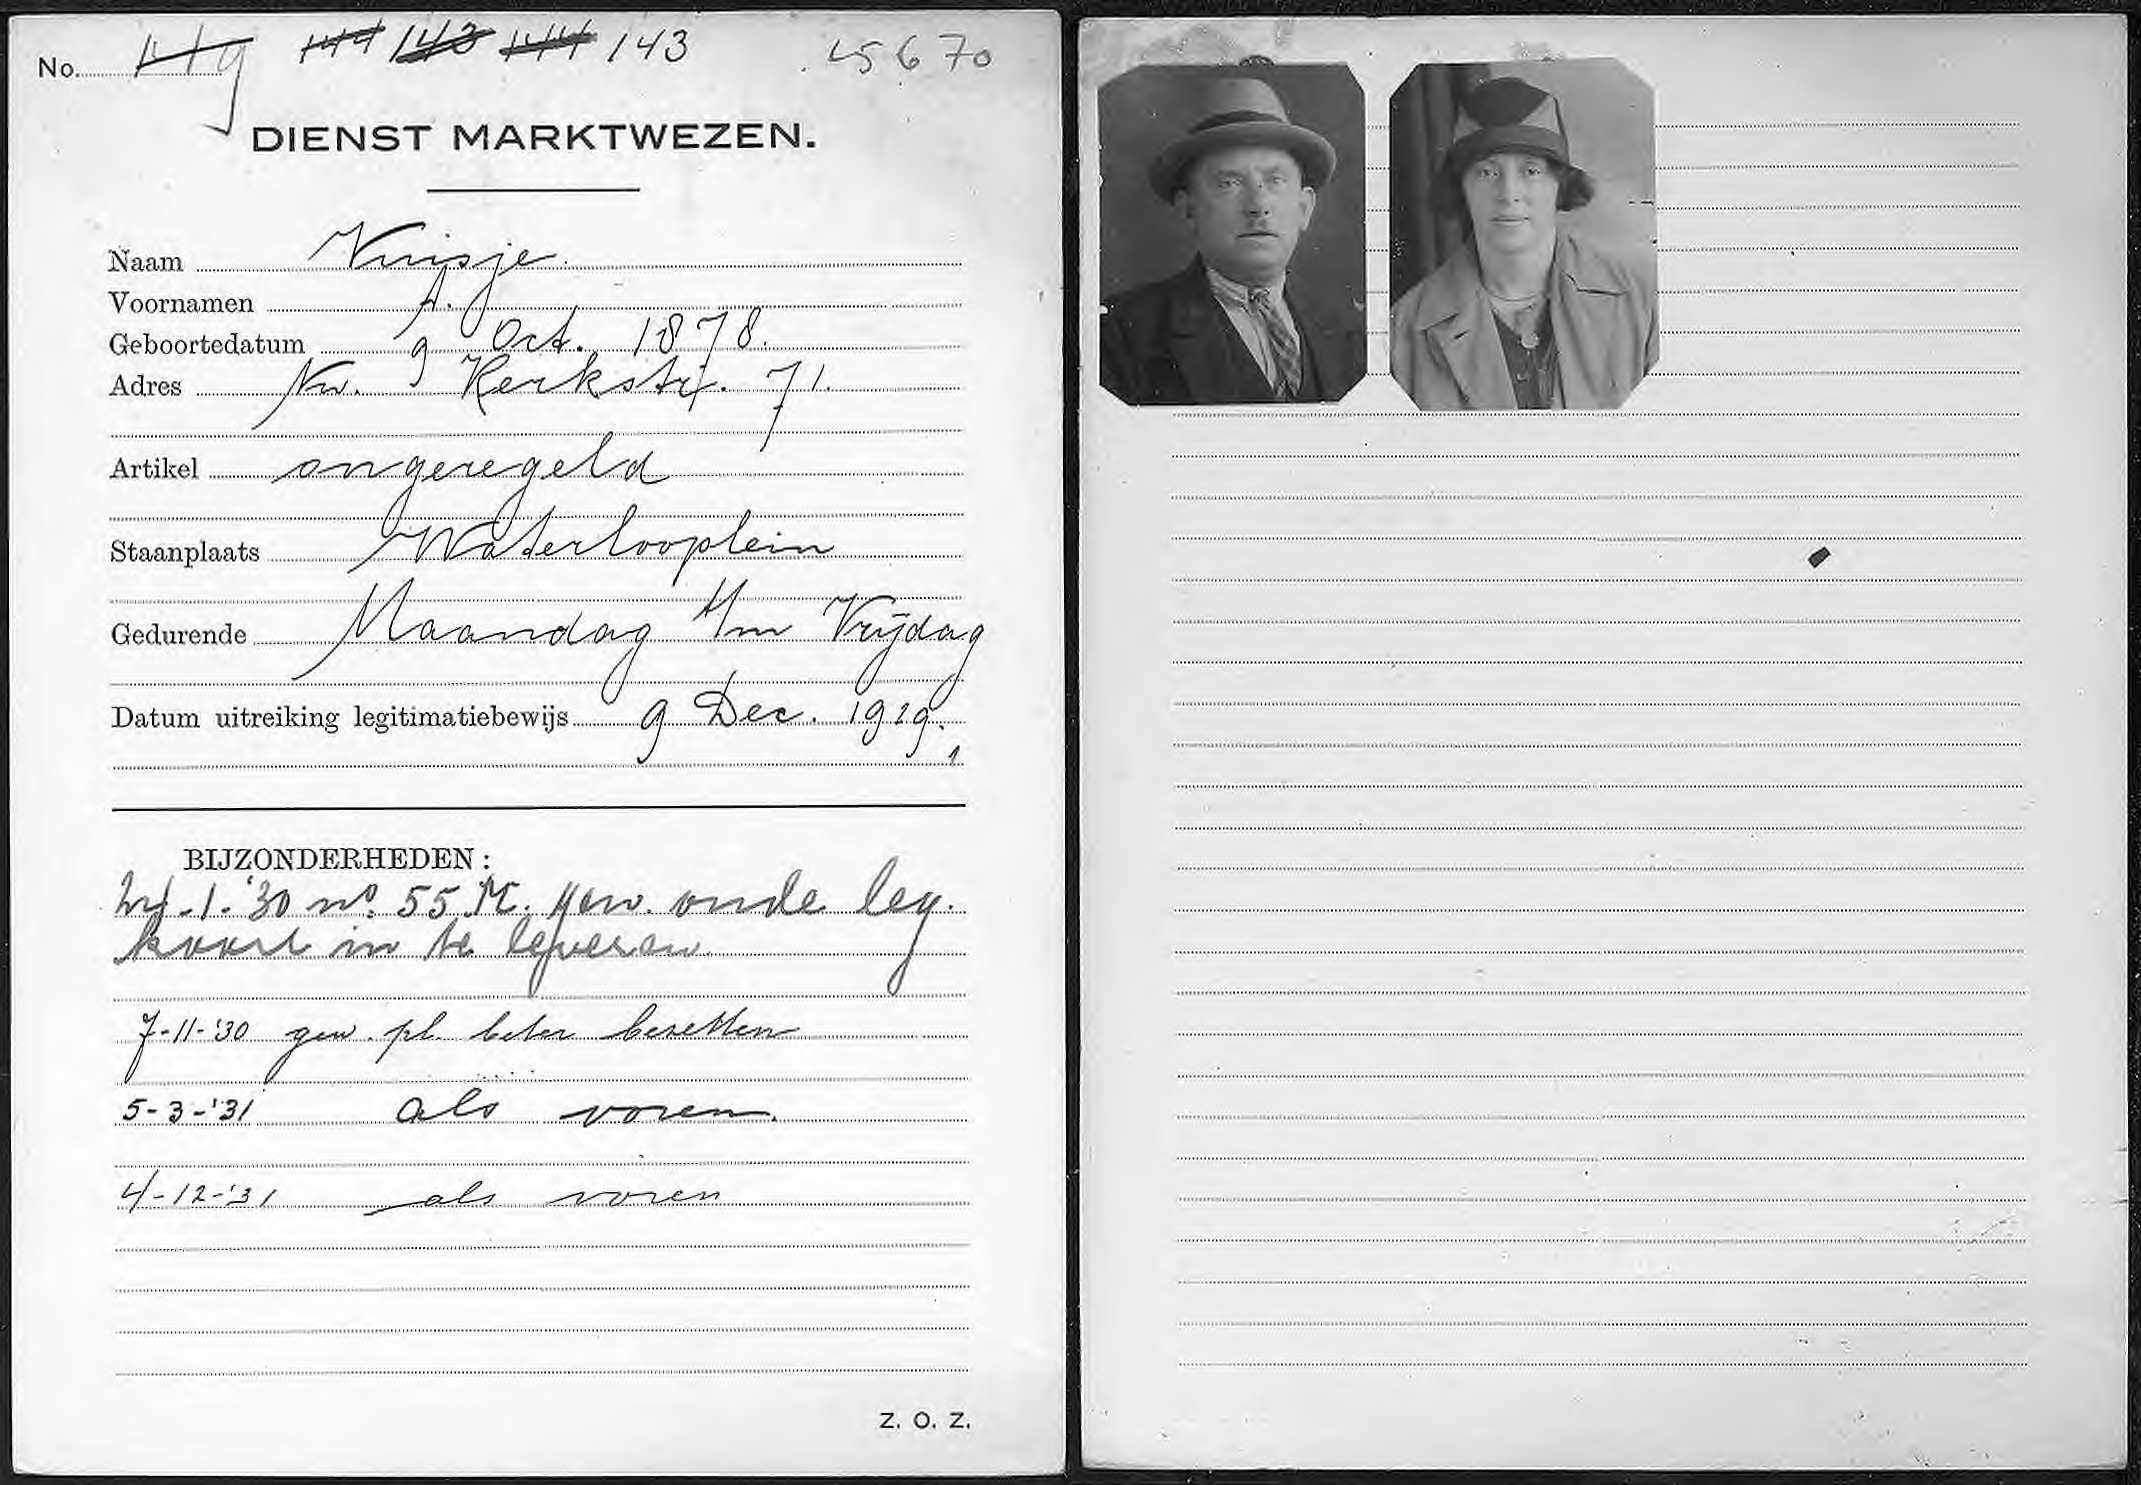 No. 149 144 143 144 143 45670
DIENST MARKTWEZEN.
Naam Vuisje.
Voornamen A.
Geboortedatum 9 Oct. 1878.
Adres Nw. Kerkstr. 71.
Artikel ongeregeld
Staanplaats Waterlooplein
Gedurende Maandag t/m Vrijdag
Datum uitreiking legitimatiebewijs 9 Dec. 1929.
BIJZONDERHEDEN:
24-1-'30 no. 55 M. gew. oude leg.
kaart in te leveren
7-11-'30 gew. pl. beter bezetten
5-3-'31 als voren.
4-12-'31 als voren
Z. O. Z.